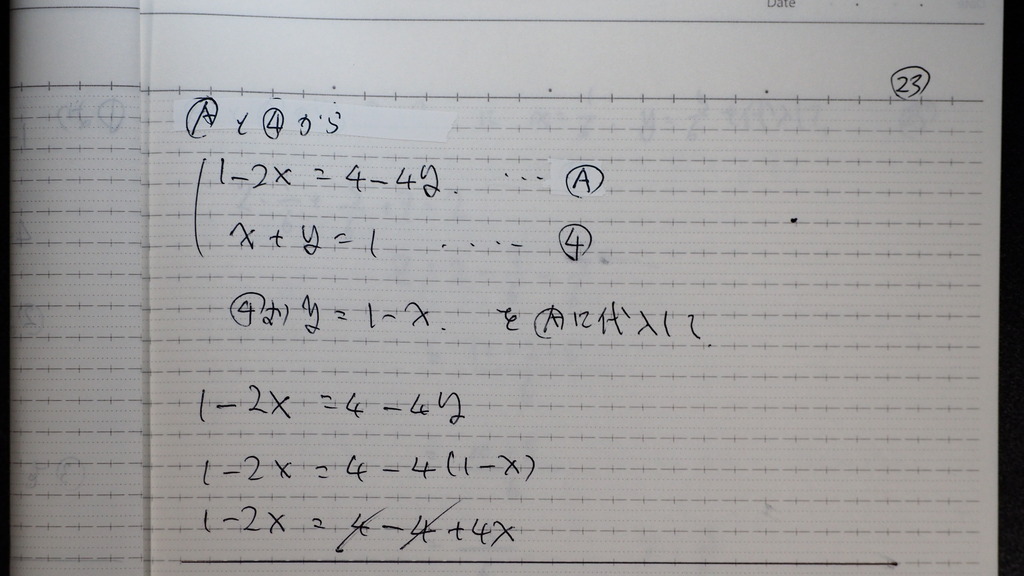 Date
㉓
Ⓐと④から
1-2x=4-4y. ... Ⓐ
x+y=1 ..... ④
④より y=1-x. をⒶに代入して
1-2x=4-4y
1-2x=4-4(1-x)
1-2x=4-4+4x